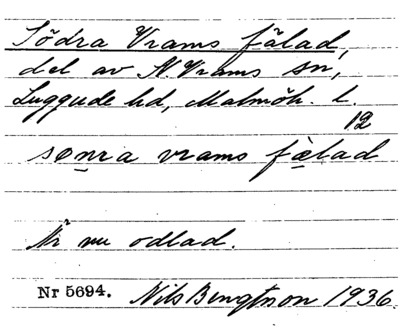 Södra Vrams fälad,
del av N. Vrams sn,
Luggude hd, Malmöh. l.
12
sønra vrams fælad
Är nu odlad.
Nr 5694. Nils Bengtsson 1936.